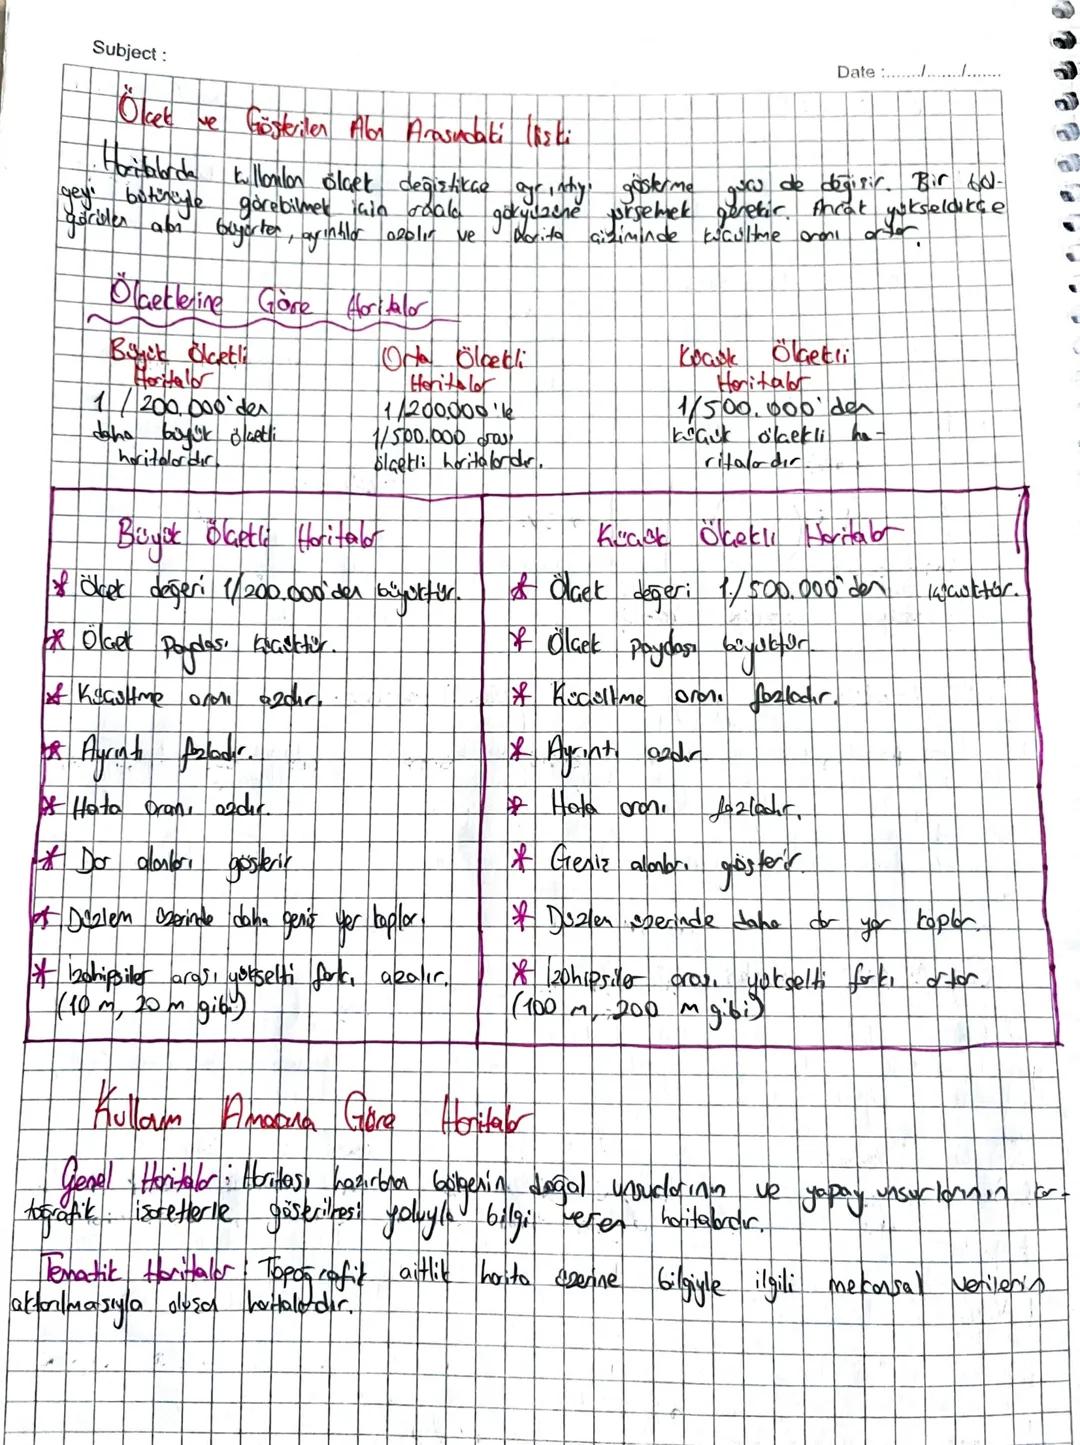 Subject :
Date :......../......../........
Ölçek ve Gösterilen Alan Arasındaki İlişki
Haritalarda kullanılan ölçek değiştikçe ayrıntıyı gösterme gücü de değişir. Bir böl-
geyi bütünüyle görebilmek için orada gökyüzüne yükselmek gerekir. Ancak yükseldikçe
görülen alan büyürken, ayrıntılar azalır ve harita çiziminde küçültme oranı artar.
Ölçeklerine Göre Haritalar
Büyük Ölçekli Orta Ölçekli Küçük Ölçekli
Haritalar Haritalar Haritalar
1/200.000'den 1/200.000 ile 1/500.000'den
daha büyük ölçekli 1/500.000 arası küçük ölçekli ha-
haritalardır. ölçekli haritalardır. ritalardır.
Büyük Ölçekli Haritalar
* Ölçek değeri 1/200.000'den büyüktür.
* Ölçek paydası küçüktür.
* Küçültme oranı azdır.
* Ayrıntı fazladır.
* Hata oranı azdır.
* Dar alanları gösterir
* Düzlem üzerinde daha geniş yer kaplar.
* İzohipsler arası yükselti farkı azalır.
(10 m, 20 m gibi)
Küçük Ölçekli Haritalar
* Ölçek değeri 1/500.000'den küçüktür.
* Ölçek paydası büyüktür.
* Küçültme oranı fazladır.
* Ayrıntı azdır
* Hata oranı fazladır.
* Geniz alanları gösterir.
* Düzlem üzerinde daha dar yer kaplar.
* İzohipsiler arası yükselti farkı artar.
(100 m, 200 m gibi)
Kullanım Amacına Göre Haritalar
Genel Haritalar : Haritası hazırlanan bölgenin doğal unsurlarının ve yapay unsurlarının kar-
toğrafik işaretlerle gösterilmesi yoluyla bilgi veren haritalardır.
Tematik Haritalar : Topoğrafik altlık harita üzerine bilgiyle ilgili mekansal verilerin
aktarılmasıyla oluşan haritalardır.